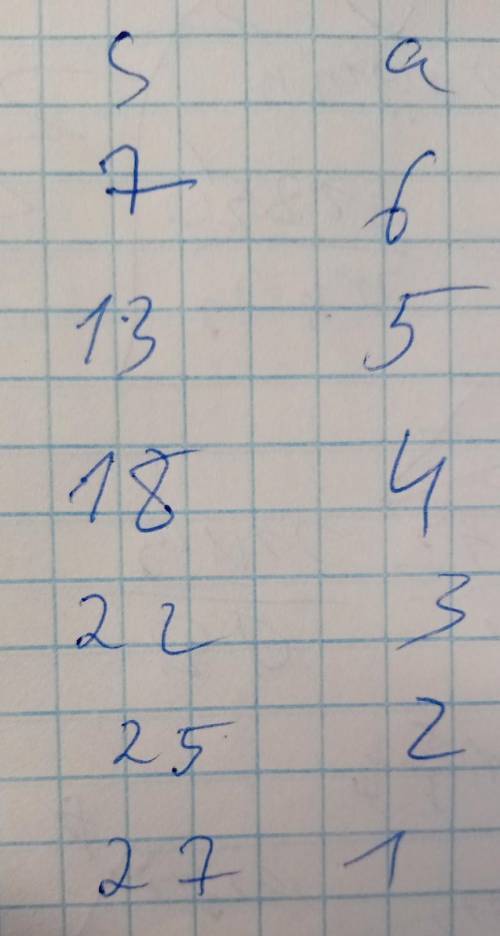 S a
7 6
13 5
18 4
22 3
25 2
27 1